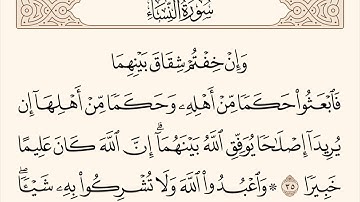 سُورَةُ النِّسَاءِ
وَإِنْ خِفْتُمْ شِقَاقَ بَيْنِهِمَا
فَٱبْعَثُوا۟ حَكَمًا مِّنْ أَهْلِهِۦ وَحَكَمًا مِّنْ أَهْلِهَآ إِن
يُرِيدَآ إِصْلَٰحًا يُوَفِّقِ ٱللَّهُ بَيْنَهُمَآ ۗ إِنَّ ٱللَّهَ كَانَ عَلِيمًا
خَبِيرًا ٣٥ ۞ وَٱعْبُدُوا۟ ٱللَّهَ وَلَا تُشْرِكُوا۟ بِهِۦ شَيْـًٔا ۖ